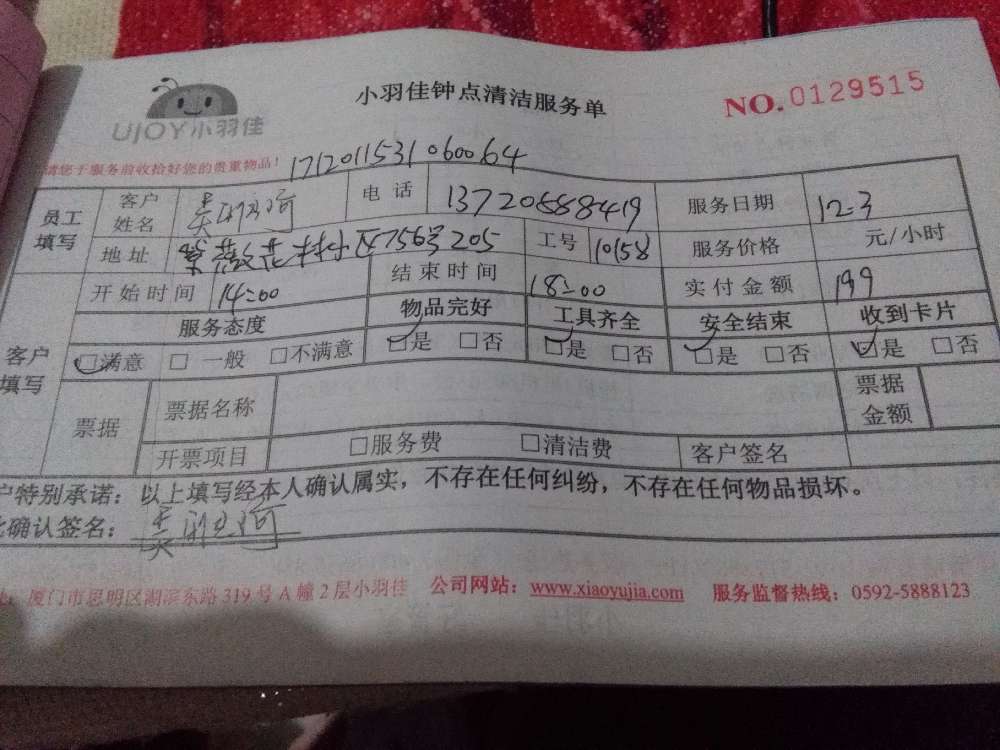 小羽佳钟点清洁服务单
NO.0129515
UJOY小羽佳
请您于服务前收拾好您的贵重物品!
1712011531060064
员工填写
客户姓名 吴
电话 13720888419
服务日期 12-3
地址 紫薇花林小区4756号205
工号 10158
服务价格 元/小时
开始时间 14:00
结束时间 18:00
实付金额 199
客户填写
服务态度 物品完好 工具齐全 安全结束 收到卡片
☑满意 □一般 □不满意 ☑是 □否 ☑是 □否 ☑是 □否 ☑是 □否
票据 票据名称 票据金额
开票项目 □服务费 □清洁费 客户签名
户特别承诺:以上填写经本人确认属实,不存在任何纠纷,不存在任何物品损坏。
确认签名:吴
厦门市思明区湖滨东路319号A幢2层小羽佳 公司网站:www.xiaoyujia.com 服务监督热线:0592-5888123